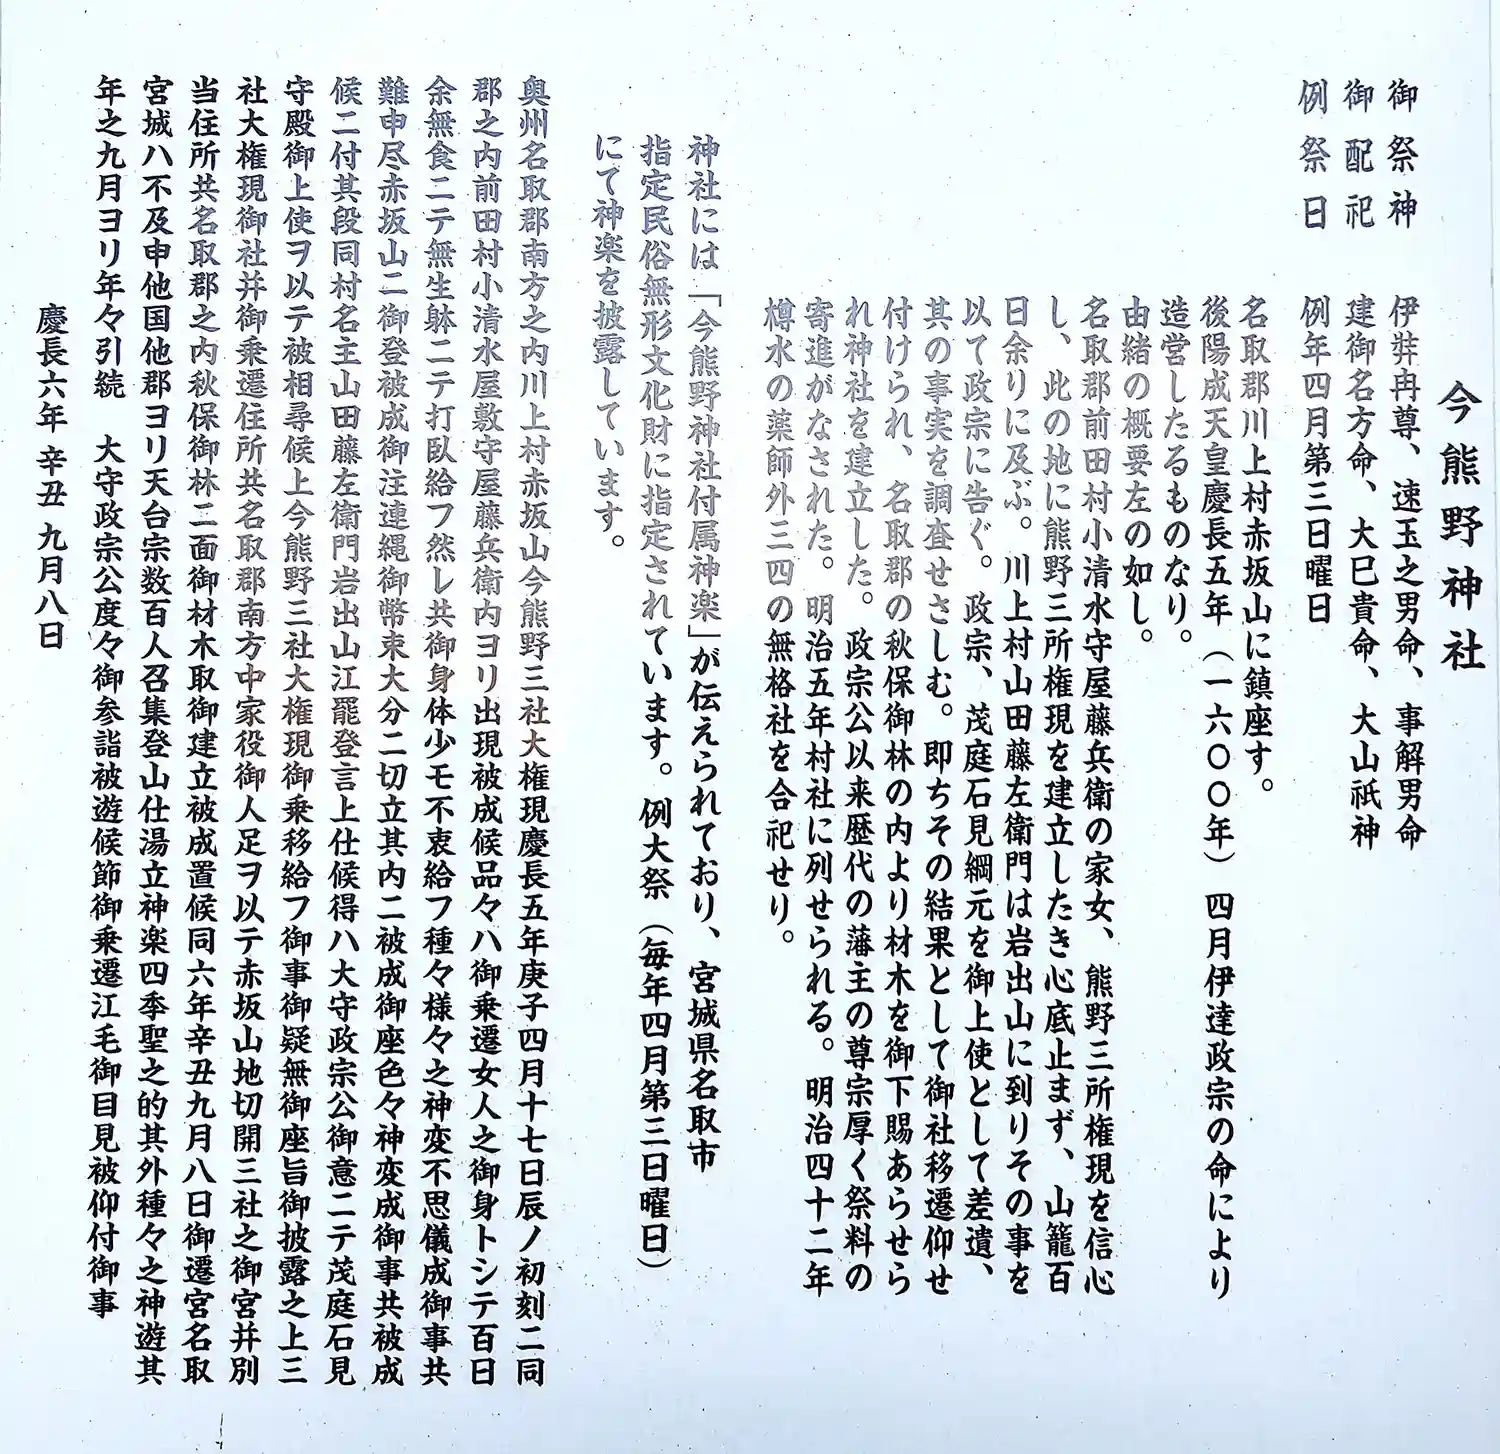 今熊野神社
御祭神 伊弉冉尊、速玉之男命、事解男命
御配祀 建御名方命、大巳貴命、大山祇神
例祭日 例年四月第三日曜日
名取郡川上村赤坂山に鎮座す。
後陽成天皇慶長五年（一六〇〇年）四月伊達政宗の命により
造営したるものなり。
由緒の概要左の如し。
名取郡前田村小清水守屋藤兵衛の家女、熊野三所権現を信心
し、此の地に熊野三所権現を建立したき心底止まず、山籠百
日余りに及ぶ。川上村山田藤左衛門は岩出山に到りその事を
以て政宗に告ぐ。政宗、茂庭石見綱元を御上使として差遺、
其の事実を調査せさしむ。即ちその結果として御社移遷仰せ
付けられ、名取郡の秋保御林の内より材木を御下賜あらせら
れ神社を建立した。政宗公以来歴代の藩主の尊宗厚く祭料の
寄進がなされた。明治五年村社に列せられる。明治四十二年
樽水の薬師外三四の無格社を合祀せり。
神社には「今熊野神社付属神楽」が伝えられており、宮城県名取市
指定民俗無形文化財に指定されています。例大祭（毎年四月第三日曜日）
にて神楽を披露しています。
奥州名取郡南方之内川上村赤坂山今熊野三社大権現慶長五年庚子四月十七日辰ノ初刻二同
郡之内前田村小清水屋敷守屋藤兵衛内ヨリ出現被成候品々ハ御乗遷女人之御身トシテ百日
余無食二テ無生躰二テ打臥給フ然レ共御身体少モ不衷給フ種々様々之神変不思儀成御事共
難申尽赤坂山二御登被成御注連縄御幣束大分二切立其内二被成御座色々神変成御事共被成
候二付其段同村名主山田藤左衛門岩出山江罷登言上仕候得ハ大守政宗公御意二テ茂庭石見
守殿御上使ヲ以テ被相尋候上今熊野三社大権現御乗移給フ御事御疑無御座旨御披露之上三
社大権現御社并御乗遷住所共名取郡南方中家役御人足ヲ以テ赤坂山地切開三社之御宮并別
当住所共名取郡之内秋保御林二面御材木取御建立被成置候同六年辛丑九月八日御遷宮名取
宮城ハ不及申他国他郡ヨリ天台宗数百人召集登山仕湯立神楽四季聖之的其外種々之神遊其
年之九月ヨリ年々引続　大守政宗公度々御参詣被遊候節御乗遷江毛御目見被仰付御事
慶長六年 辛丑 九月八日